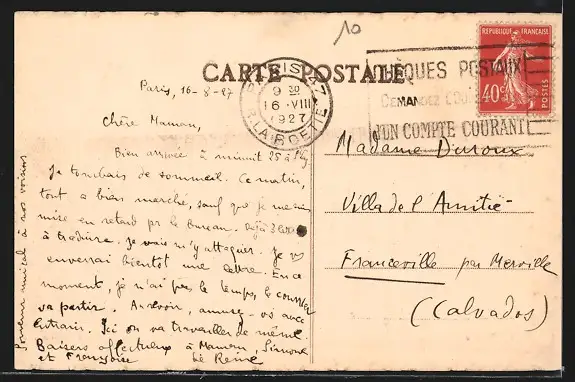 10
CARTE POSTALE
PARIS
R. LA BOETIE
9 30
16 VIII
1927
CHÈQUES POSTAUX
DEMANDEZ L'OUV
D'UN COMPTE COURANT
REPUBLIQUE FRANÇAISE
40c
POSTES
Paris, 16-8-27
Chère Maman,
Bien arrivée à minuit 25 à
Je tombais de sommeil. Ce matin,
tout a bien marché, sauf que je me suis
mise en retard pr le bureau. Déjà 3 lettres
à traduire. Je vais m'y attaquer. Je vs
enverrai bientôt une lettre. En ce
moment, je n'ai pas le temps, le courrier
va partir. Au revoir, amusez-vs avec
entrain. Ici on va travailler de même.
Baisers affectueux à Maman, Simone
et Françoise
Souvenir amical à nos voisins
Madame Duroux
Villa de l'Amitié
Franceville par Merville
(Calvados)